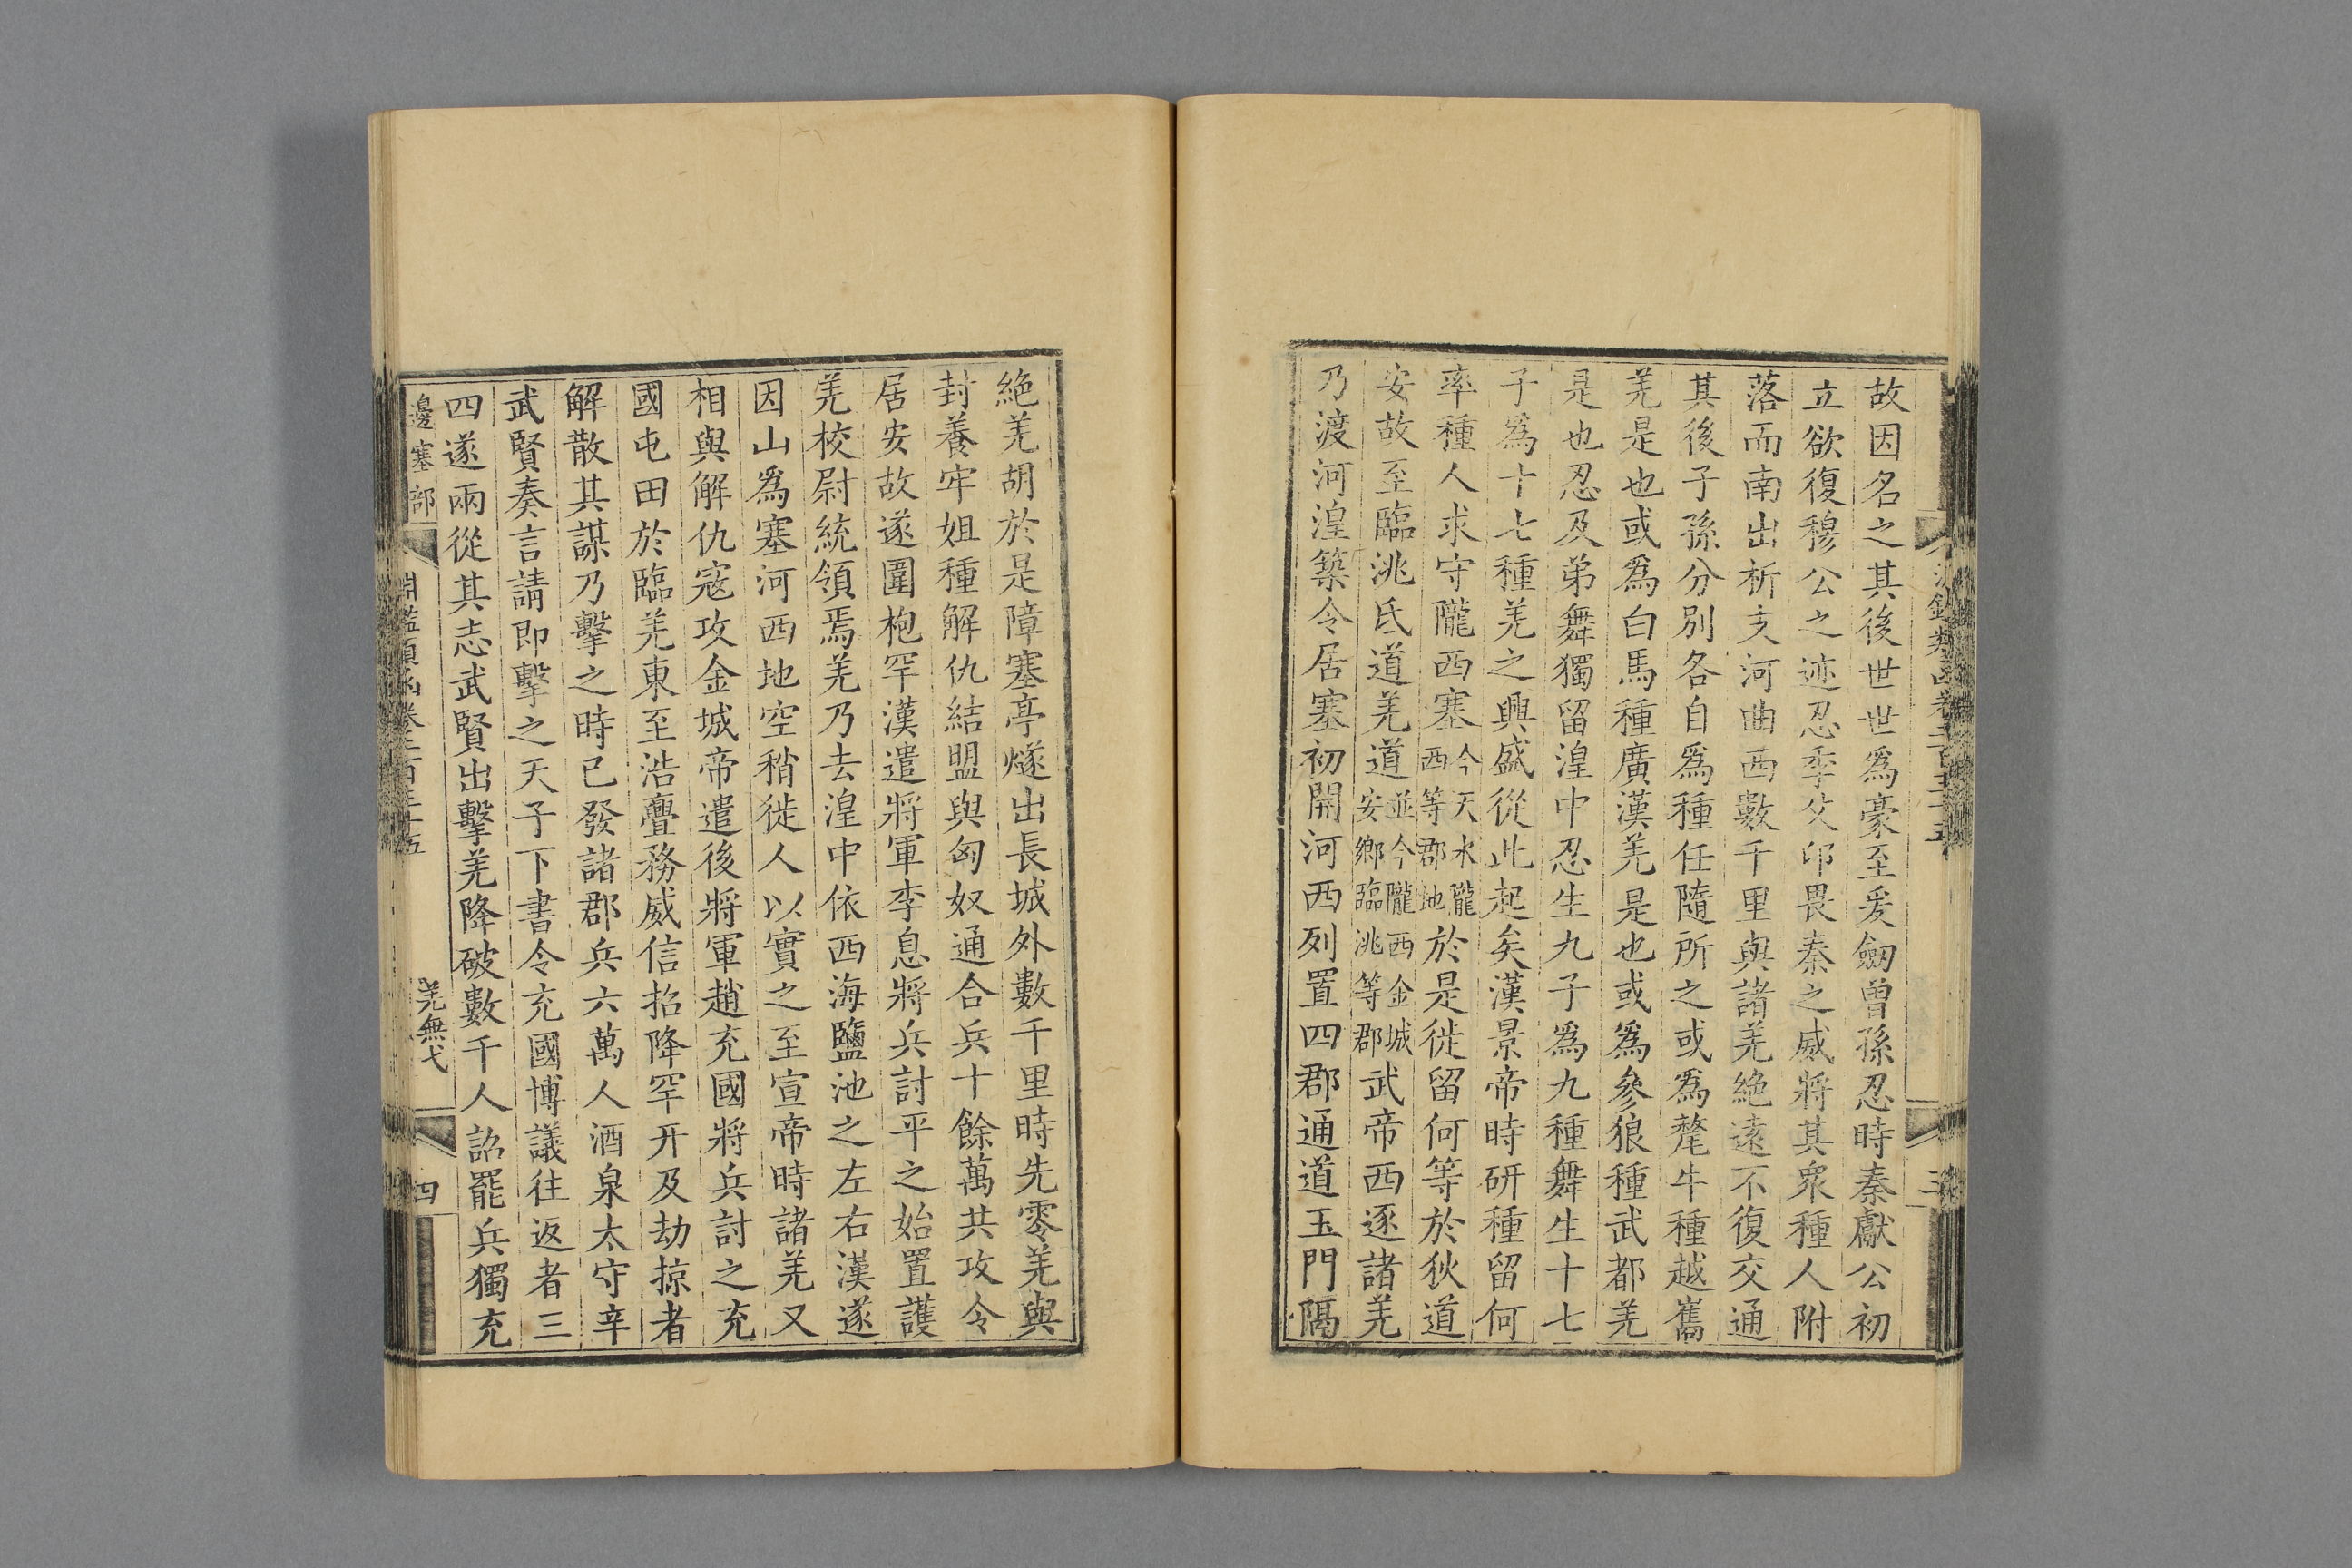 故因名之其後世世爲豪至爰劒曾孫忍時秦獻公初
立欲復穆公之迹忍季父卬畏秦之威將其衆種人附
落而南出析支河曲西數千里與諸羌絶遠不復交通
其後子孫分別各自爲種任隨所之或爲氂牛種越嶲
羌是也或爲白馬種廣漢羌是也或爲參狼種武都羌
是也忍及弟舞獨留湟中忍生九子爲九種舞生十七
子爲十七種羌之興盛從此起矣漢景帝時研種留何
率種人求守隴西塞今天水隴西等郡地於是徙留何等於狄道
安故至臨洮氐道羌道並今隴西金城安鄉臨洮等郡武帝西逐諸羌
乃渡河湟築令居塞初開河西列置四郡通道玉門隔
絶羌胡於是障塞亭燧出長城外數千里時先零羌與
封養牢姐種解仇結盟與匈奴通合兵十餘萬共攻令
居安故遂圍枹罕漢遣將軍李息將兵討平之始置護
羌校尉統領焉羌乃去湟中依西海鹽池之左右漢遂
因山爲塞河西地空稍徙人以實之至宣帝時諸羌又
相與解仇寇攻金城帝遣後將軍趙充國將兵討之充
國屯田於臨羌東至浩亹務威信招降罕幵及劫掠者
解散其謀乃擊之時已發諸郡兵六萬人酒泉太守辛
武賢奏言請即擊之天子下書令充國博議往返者三
四遂兩從其志武賢出擊羌降破數千人詔罷兵獨充
邊塞部
淵鑑類函卷二百三十五
羌無弋
四